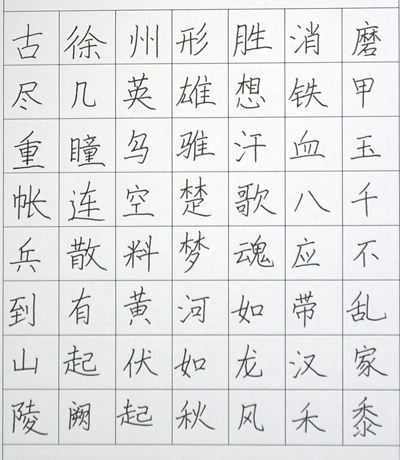 古徐州形胜消磨
尽几英雄想铁甲
重瞳乌骓汗血玉
帐连空楚歌八千
兵散料梦魂应不
到有黄河如带乱
山起伏如龙汉家
陵阙起秋风禾黍